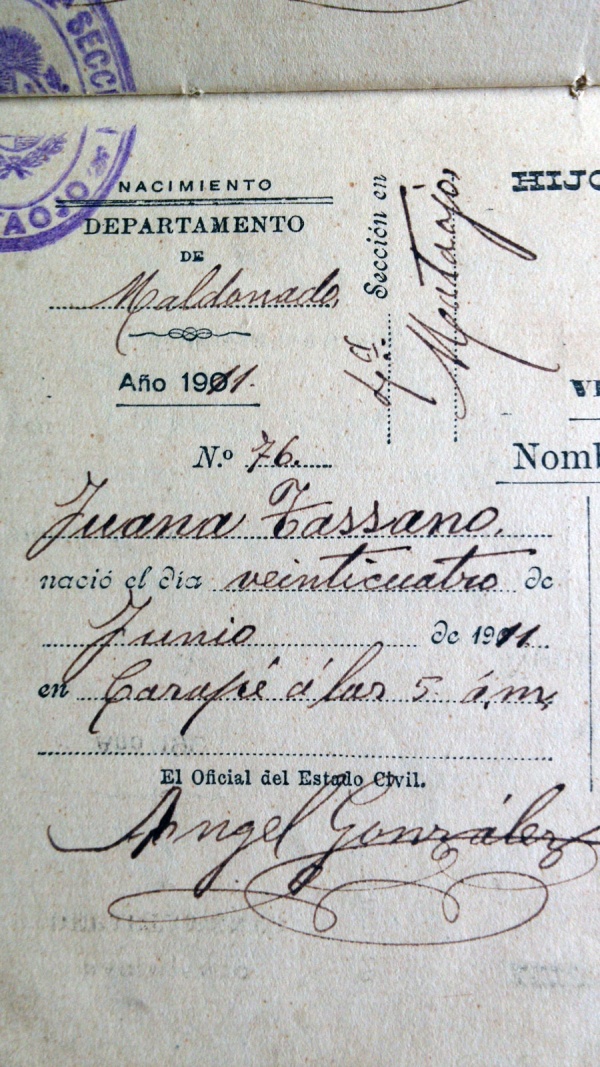 SECCI
TAOJO
NACIMIENTO
DEPARTAMENTO
DE
Maldonado
Año 1911.
4ª Sección en
Mataojo
HIJO
N.º 76.
Nomb
Juana Tassano.
nació el día veinticuatro de
Junio de 1911
en Carapé á las 5 á.m.
El Oficial del Estado Civil.
Angel González